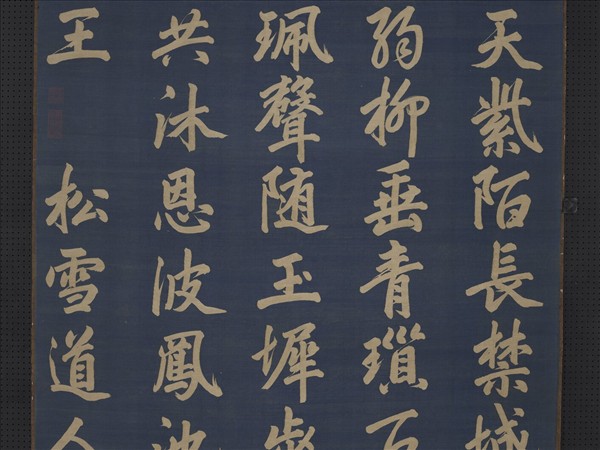 天紫陌長禁城
弱柳垂青瑣百
珮聲随玉墀步
共沐恩波鳳池
王 松雪道人